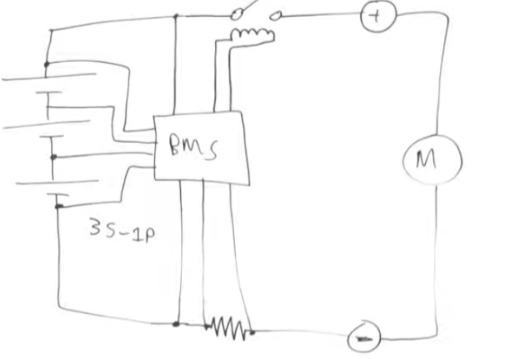 +
BMS
M
3S-1P
-